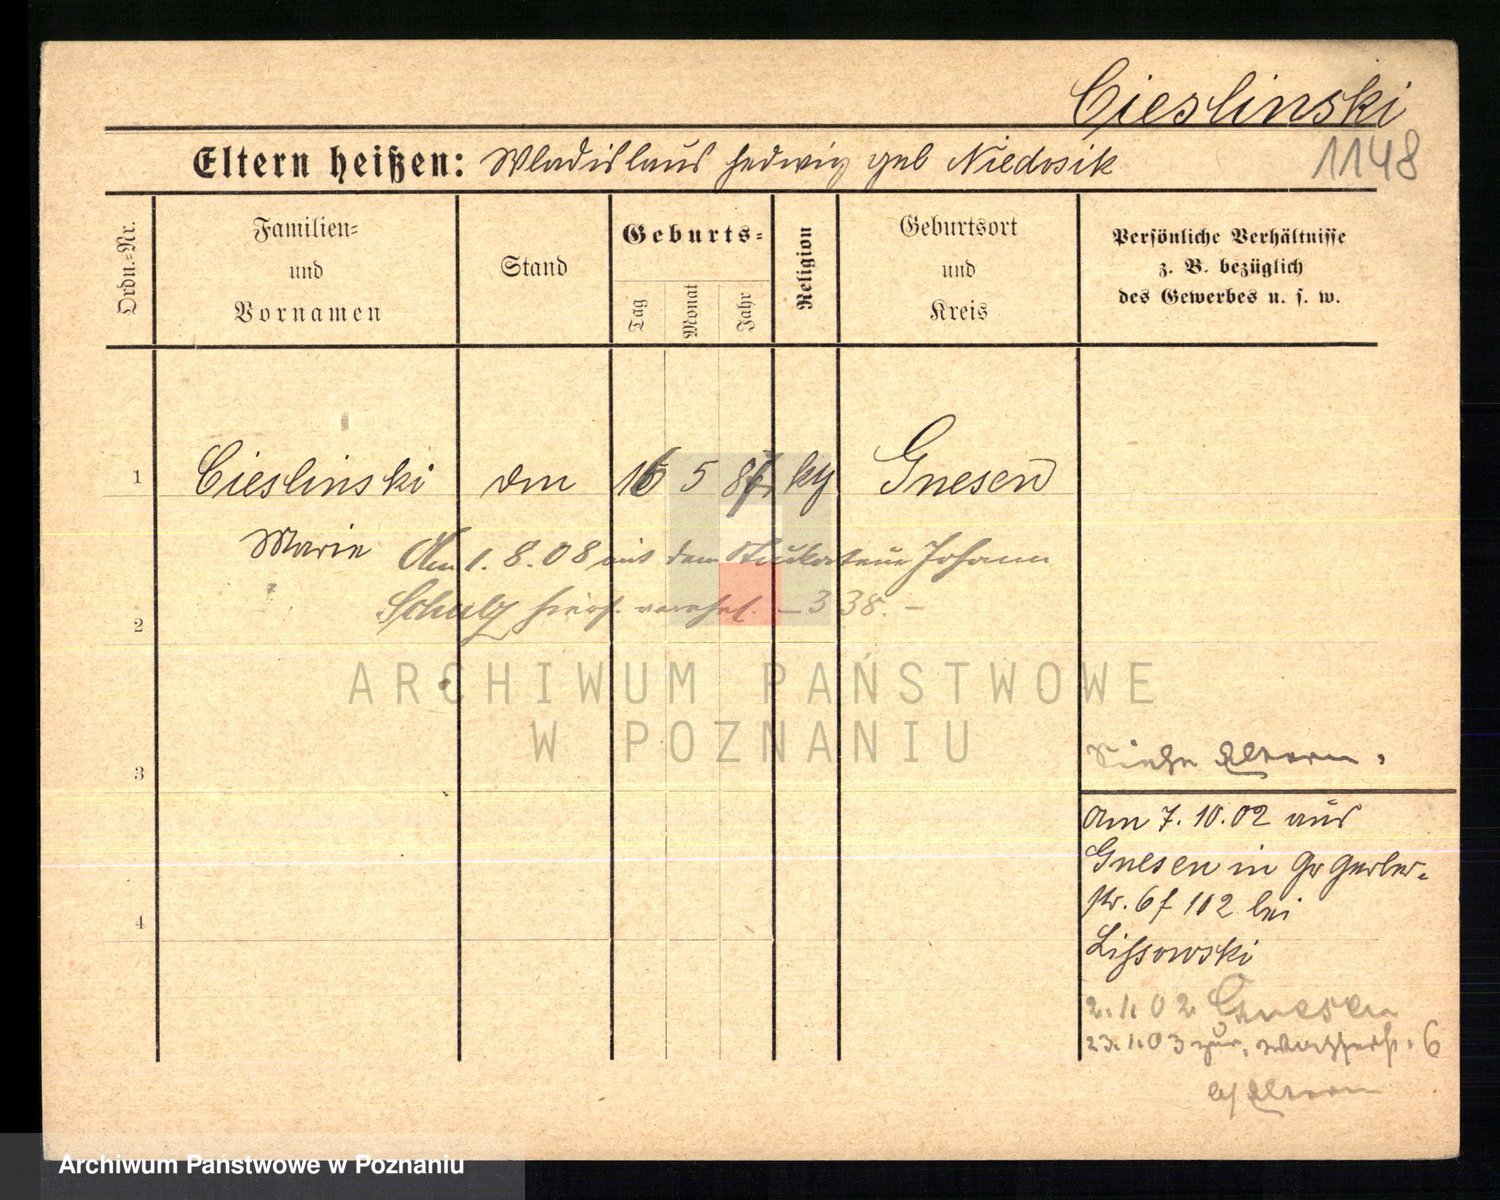 Cieslinski
1148
Eltern heißen: Wladislaus Hedwig geb Niedosik
Ordn.-Nr.
Familien-
und
Vornamen
Stand
Geburts-
Tag
Monat
Jahr
Religion
Geburtsort
und
Kreis
Persönliche Verhältnisse
z. B. bezüglich
des Gewerbes u. s. w.
1 Cieslinski 5 Gnesen
Marie Am 1.8.08 mit dem Stuckateur Johann
Schulz hiers. verehel. – 338. –
2
ARCHIWUM PAŃSTWOWE
W POZNANIU
Siehe Eltern.
3
Am 7.10.02 aus
Gnesen in Gr Gerber-
str. 6 102 bei
4
Lissowski
Gnesen
23.1.03 zur. Wasserstr. 6
b/ Eltern
Archiwum Państwowe w Poznaniu